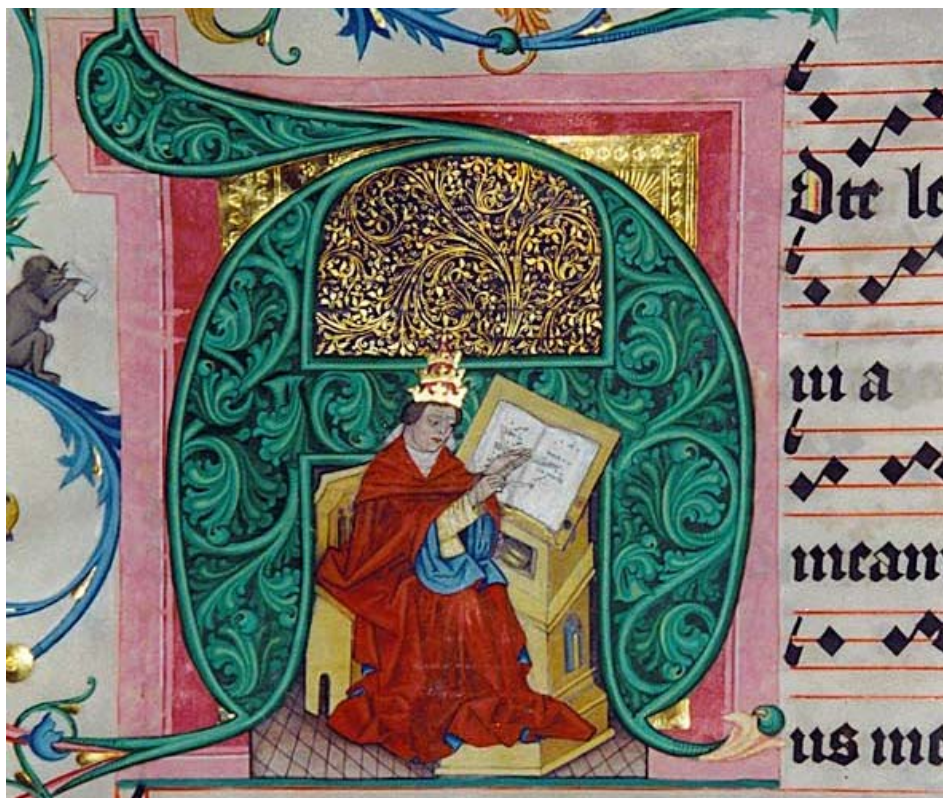 ADte le
ui a
meam
us me